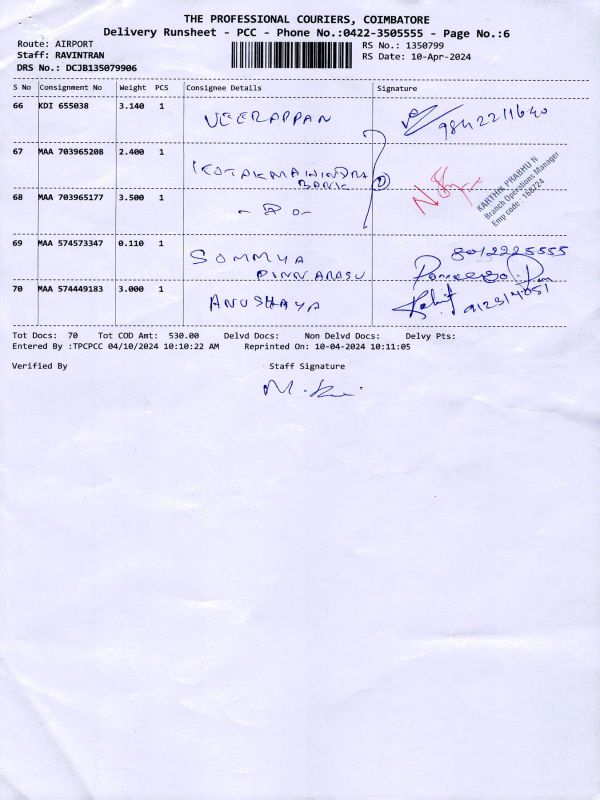 THE PROFESSIONAL COURIERS, COIMBATORE
Delivery Runsheet - PCC - Phone No.:0422-3505555 - Page No.:6
Route: AIRPORT
Staff: RAVINTRAN
DRS No.: DCJB135079906
RS No.: 1350799
RS Date: 10-Apr-2024
S No Consignment No Weight PCS Consignee Details Signature
66 KDI 655038 3.140 1 VEERAPPAN 9842211640
67 MAA 703965208 2.400 1 KOTAK MAHINDRA
BANK 2
KARTHIK PRABHU N
Branch Operations Manager
Emp code : 168724
68 MAA 703965177 3.500 1 - Do -
69 MAA 574573347 0.110 1 SOMMYA 8012225555
PINNARASU
70 MAA 574449183 3.000 1 ANUSHAYA
Tot Docs: 70 Tot COD Amt: 530.00 Delvd Docs: Non Delvd Docs: Delvy Pts:
Entered By :TPCPCC 04/10/2024 10:10:22 AM Reprinted On: 10-04-2024 10:11:05
Verified By Staff Signature